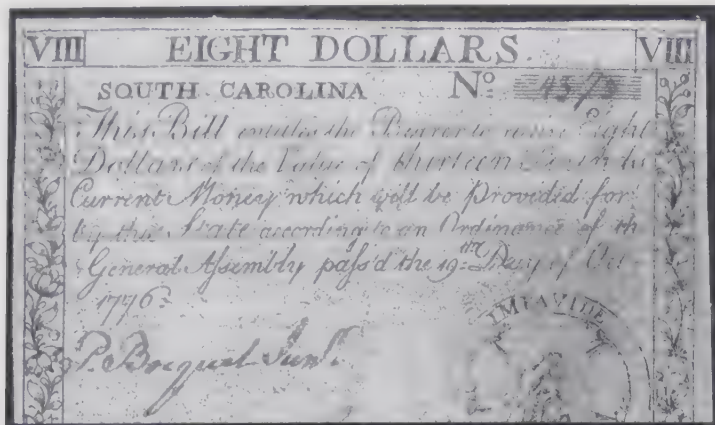 VIII EIGHT DOLLARS. VIII
SOUTH CAROLINA Nº 4373
This Bill entitles the Bearer to receive Eight
Dollars of the Value of thirteen Pounds
Current Money which will be provided for
by this State according to an Ordinance of th
General Assembly pass'd the 19th Day of Oct
1776.
P. Bocquet Junr.
IMPAVIDE